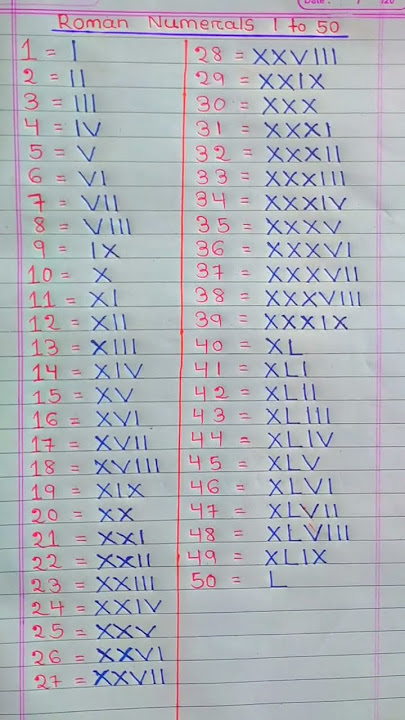 Date :
Roman Numerals 1 to 50
1 = I
2 = II
3 = III
4 = IV
5 = V
6 = VI
7 = VII
8 = VIII
9 = IX
10 = X
11 = XI
12 = XII
13 = XIII
14 = XIV
15 = XV
16 = XVI
17 = XVII
18 = XVIII
19 = XIX
20 = XX
21 = XXI
22 = XXII
23 = XXIII
24 = XXIV
25 = XXV
26 = XXVI
27 = XXVII
28 = XXVIII
29 = XXIX
30 = XXX
31 = XXXI
32 = XXXII
33 = XXXIII
34 = XXXIV
35 = XXXV
36 = XXXVI
37 = XXXVII
38 = XXXVIII
39 = XXXIX
40 = XL
41 = XLI
42 = XLII
43 = XLIII
44 = XLIV
45 = XLV
46 = XLVI
47 = XLVII
48 = XLVIII
49 = XLIX
50 = L